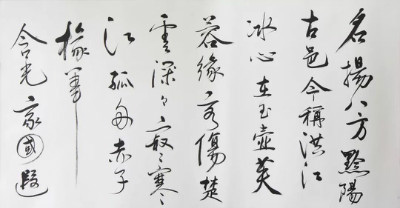 名揚八方黔陽
古邑今稱洪江
冰心在玉壺芙
蓉緣客傷楚
雲深々寂々寒
江孤舟赤子
椽筆
含光家國